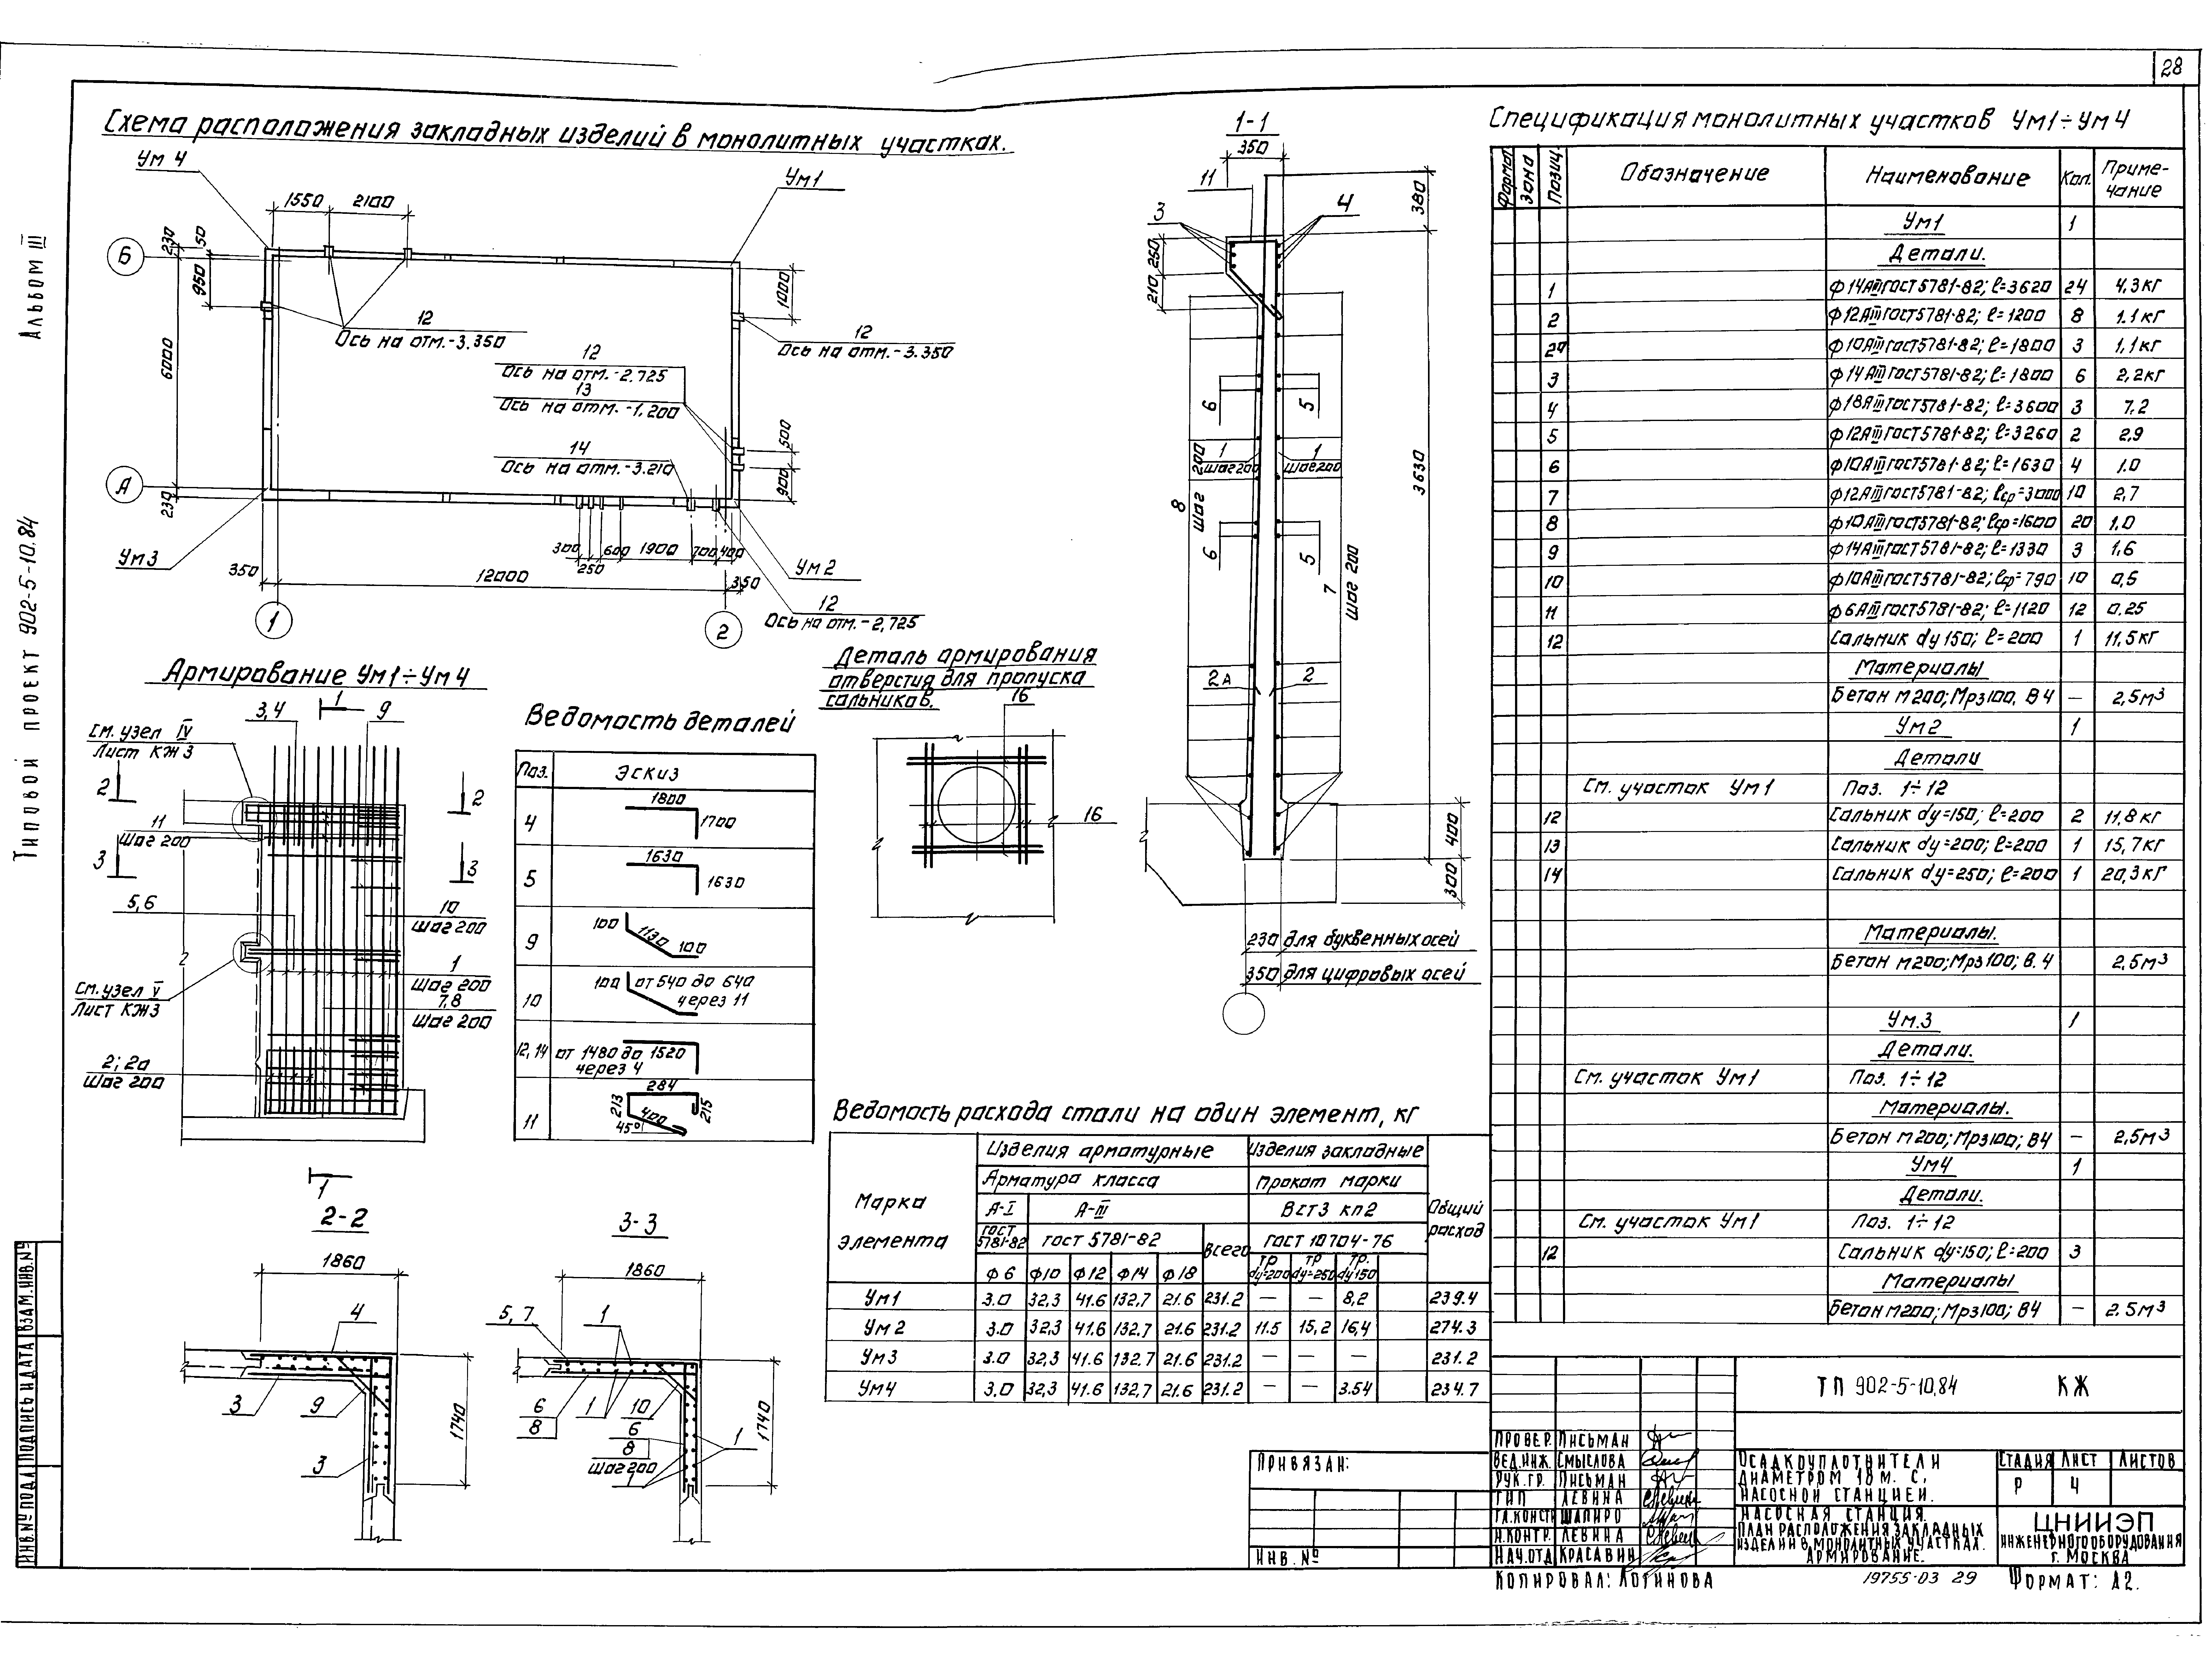 28
Альбом III
Типовой проект 902-5-10.84
Схема расположения закладных изделий в монолитных участках.
Ум 4
Ум1
1550
2100
Б
230
50
950
6000
1000
12
Ось на отм.-3,350
12
Ось на отм.-3.350
12
Ось на отм.-2,725
13
Ось на отм.-1,200
14
Ось на отм.-3.210
500
900
А
230
Ум3
350
300
250
600
1900
700
400
12000
350
Ум 2
1
2
12
Ось на отм.-2,725
1-1
350
11
3
4
380
250
210
6
5
200
1
шаг 200
1
шаг 200
8
шаг
3630
6
5
7
шаг 200
2А
2
400
300
230 для буквенных осей
350 для цифровых осей
Армирование Ум1÷Ум4
1
3,4
9
См. узел IV
Лист КЖ3
2
2
11
Шаг 200
3
3
5,6
10
Шаг 200
1
Шаг 200
7,8
Шаг 200
См. узел V
Лист КЖ3
2; 2а
Шаг 200
1
Ведомость деталей
Поз.
Эскиз
4
1800
1700
5
1630
1630
9
100
1130
100
10
100
от 540 до 640
через 11
12,14
от 1480 до 1520
через 4
11
284
213
400
215
45°
Деталь армирования
отверстия для пропуска
сальников.
16
16
2-2
1860
4
3
9
3
1740
3-3
1860
5,7
1
6
8
1
10
6
8
Шаг 200
7
1
1740
Ведомость расхода стали на один элемент, кг
Марка элемента
Изделия арматурные
Изделия закладные
Общий расход
Арматура класса
Прокат марки
А-I
А-III
Вст3 кп2
ГОСТ 5781-82
ГОСТ 5781-82
Всего
ГОСТ 10704-76
ф6 ф10 ф12 ф14 ф18
тр dу=200 тр dу=250 тр. dу150
Ум1 3.0 32,3 41.6 132,7 21.6 231.2 — — 8,2 239.4
Ум 2 3.0 32,3 41.6 132.7 21.6 231.2 11.5 15,2 16,4 274.3
Ум3 3.0 32,3 41.6 132.7 21.6 231.2 — — — 231.2
Ум4 3.0 32,3 41.6 132,7 21.6 231.2 — — 3.54 234.7
Спецификация монолитных участков Ум1÷Ум4
Формат Зона Позиц. Обозначение Наименование Кол. Приме-чание
Ум1 1
Детали.
1 ф14АIII ГОСТ5781-82; ℓ=3620 24 4,3кг
2 ф12АIII ГОСТ5781-82; ℓ=1200 8 1.1кг
2а ф10АIII ГОСТ5781-82; ℓ=1800 3 1,1кг
3 ф14АIII ГОСТ5781-82; ℓ=1800 6 2,2кг
4 ф18АIII ГОСТ5781-82; ℓ=3600 3 7,2
5 ф12АIII ГОСТ5781-82; ℓ=3260 2 2,9
6 ф10АIII ГОСТ5781-82; ℓ=1630 4 1.0
7 ф12АIII ГОСТ5781-82; ℓср=3000 10 2,7
8 ф10АIII ГОСТ5781-82; ℓср=1600 20 1.0
9 ф14АIII ГОСТ5781-82; ℓ=1330 3 1,6
10 ф10АIII ГОСТ5781-82; ℓср=790 10 0,5
11 ф6АIII ГОСТ5781-82; ℓ=1120 12 0,25
12 Сальник dу 150; ℓ=200 1 11,5кг
Материалы
Бетон М200; Мрз100, В4 — 2,5м³
Ум2 1
Детали
См. участок Ум1 Поз. 1÷12
12 Сальник dу=150; ℓ=200 2 11,8кг
13 Сальник dу=200; ℓ=200 1 15,7кг
14 Сальник dу=250; ℓ=200 1 20,3кг
Материалы.
Бетон М200; Мрз100; В.4 2,5м³
Ум.3 1
Детали.
См. участок Ум1 Поз. 1÷12
Материалы.
Бетон М200; Мрз100; В4 — 2,5м³
Ум4 1
Детали.
См. участок Ум1 Поз. 1÷12
12 Сальник dу=150; ℓ=200 3
Материалы
Бетон М200; Мрз100; В4 — 2.5м³
ТП 902-5-10,84 КЖ
Провер. Письман
Вед.инж. Смыслова
Рук.гр. Письман
ГИП Левина
Гл.констр Шапиро
Н.контр. Левина
Нач.отд Красавин
Осадкоуплотнители
диаметром 18 м. с
насосной станцией.
Насосная станция.
План расположения закладных
изделий в монолитных участках.
Армирование.
Стадия Лист Листов
Р 4
ЦНИИЭП
инженерного оборудования
г. Москва
Привязан:
Инв. №
Копировал: Логинова
19755-03 29
Формат: А2.
Взам.инв.№
Подпись и дата
Инв.№ подл